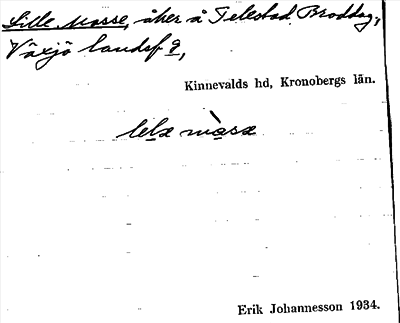 Lille Mosse, åker å Telestad, Broddag,
Växjö landsf 9,
Kinnevalds hd, Kronobergs län.
lelæ mòsæ
Erik Johannesson 1934.